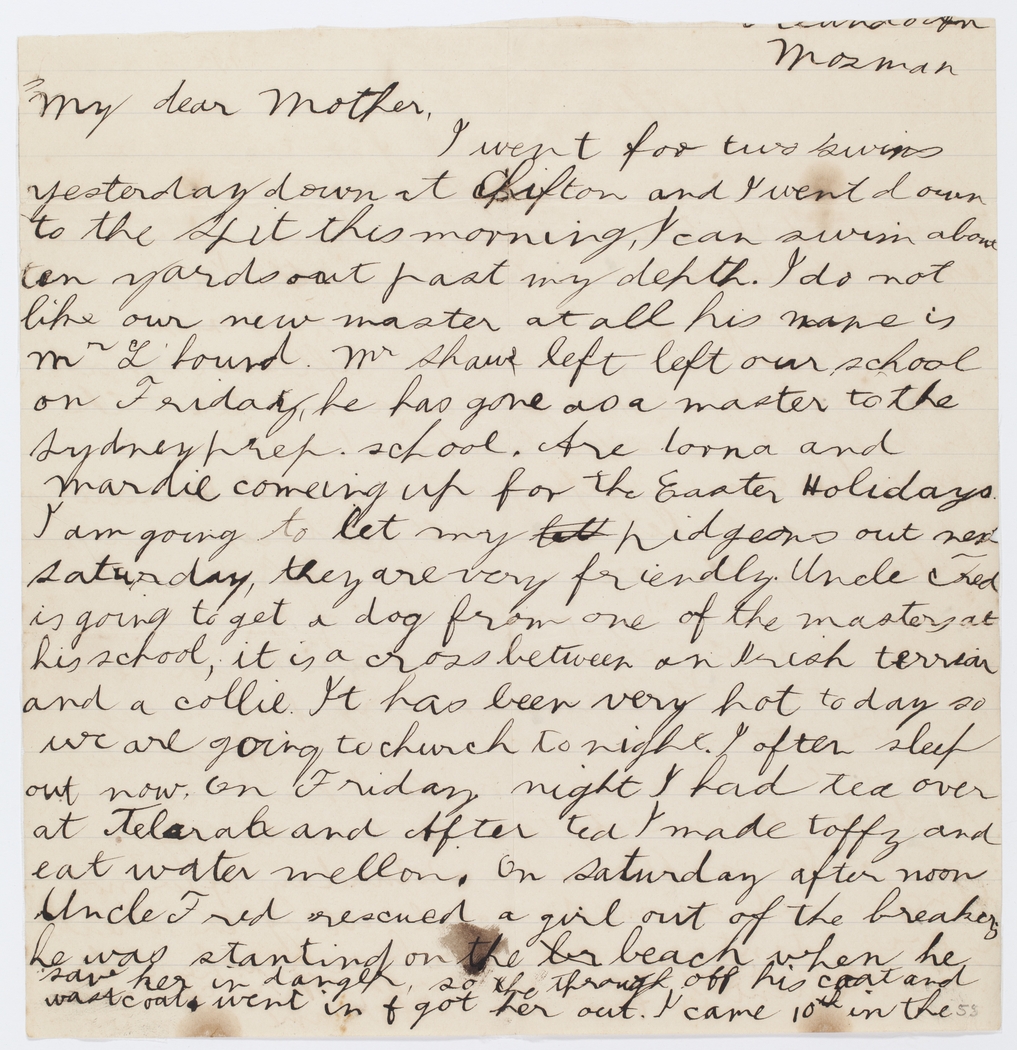 Mosman
My dear Mother,
I went for two swims
yesterday down at Clifton and I went down
to the Spit this morning, I can swim about
ten yards out past my depth. I do not
like our new master at all his name is
Mr L'bound. Mr Shaw left left our school
on Friday, he has gone as a master to the
Sydney prep. school. Are Lorna and
Mardie comeing up for the Easter Holidays.
I am going to let my pidgeons out next
saturday, they are very friendly. Uncle Fred
is going to get a dog from one of the masters at
his school, it is a cross between an Irish terrier
and a collie. It has been very hot today so
we are going to church to night. I often sleep
out now. On Friday night I had tea over
at Telarah and After tea I made toffy and
eat water mellon. On saturday after noon
Uncle Fred rescued a girl out of the breakers
he was standing on the br beach when he
saw her in danger, so he through off his coat and
wastcoat, went in & got her out. I came 10th in the
58